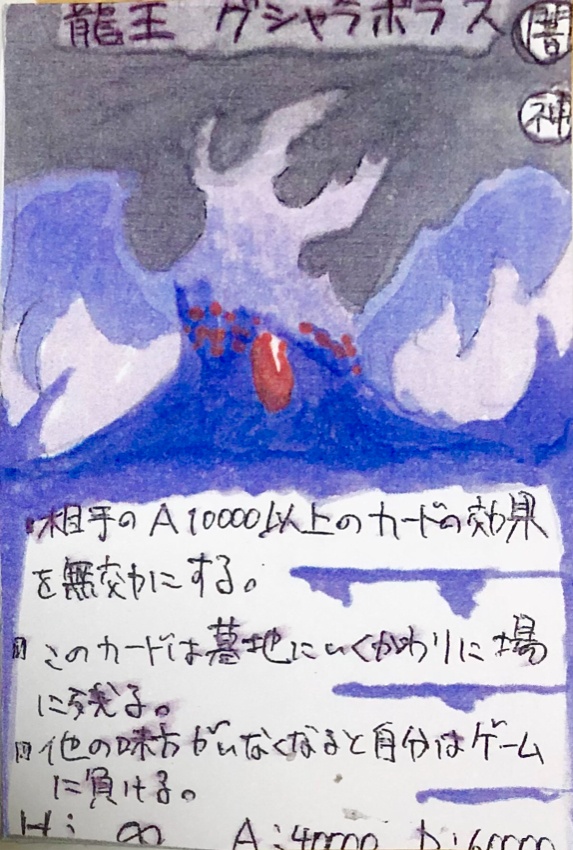 龍王 グシャラボラス 闇
神
相手のA10000以上のカードの効果
を無効にする。
このカードは墓地にいくかわりに場
に残る。
他の味方がいなくなると自分はゲーム
に負ける。
H:∞ A:40000 D:60000